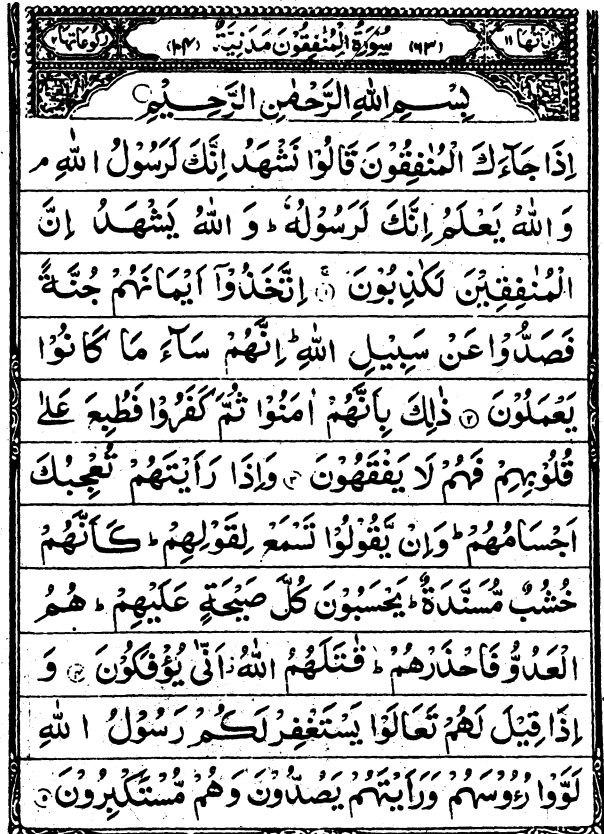 اٰیاتها ۱۱ (۶۳) سُوْرَةُ الْمُنٰفِقُوْنَ مَدَنِيَّةٌ (۱۰۴) رکوعاتها ۲
بِسْمِ اللهِ الرَّحْمٰنِ الرَّحِيْمِ
اِذَا جَآءَكَ الْمُنٰفِقُوْنَ قَالُوْا نَشْهَدُ اِنَّكَ لَرَسُوْلُ اللهِ ۘ
وَ اللهُ يَعْلَمُ اِنَّكَ لَرَسُوْلُهٗ ؕ وَ اللهُ يَشْهَدُ اِنَّ
الْمُنٰفِقِيْنَ لَكٰذِبُوْنَ ۚ﴿۱﴾ اِتَّخَذُوْۤا اَيْمَانَهُمْ جُنَّةً
فَصَدُّوْا عَنْ سَبِيْلِ اللهِ ؕ اِنَّهُمْ سَآءَ مَا كَانُوْا
يَعْمَلُوْنَ ﴿۲﴾ ذٰلِكَ بِاَنَّهُمْ اٰمَنُوْا ثُمَّ كَفَرُوْا فَطُبِعَ عَلٰى
قُلُوْبِهِمْ فَهُمْ لَا يَفْقَهُوْنَ ﴿۳﴾ وَاِذَا رَاَيْتَهُمْ تُعْجِبُكَ
اَجْسَامُهُمْ ؕ وَاِنْ يَّقُوْلُوْا تَسْمَعْ لِقَوْلِهِمْ ؕ كَاَنَّهُمْ
خُشُبٌ مُّسَنَّدَةٌ ؕ يَحْسَبُوْنَ كُلَّ صَيْحَةٍ عَلَيْهِمْ ؕ هُمُ
الْعَدُوُّ فَاحْذَرْهُمْ ؕ قٰتَلَهُمُ اللهُ ؗ اَنّٰى يُؤْفَكُوْنَ ﴿۴﴾ وَ
اِذَا قِيْلَ لَهُمْ تَعَالَوْا يَسْتَغْفِرْ لَكُمْ رَسُوْلُ اللهِ
لَوَّوْا رُءُوْسَهُمْ وَرَاَيْتَهُمْ يَصُدُّوْنَ وَهُمْ مُّسْتَكْبِرُوْنَ ﴿۵﴾